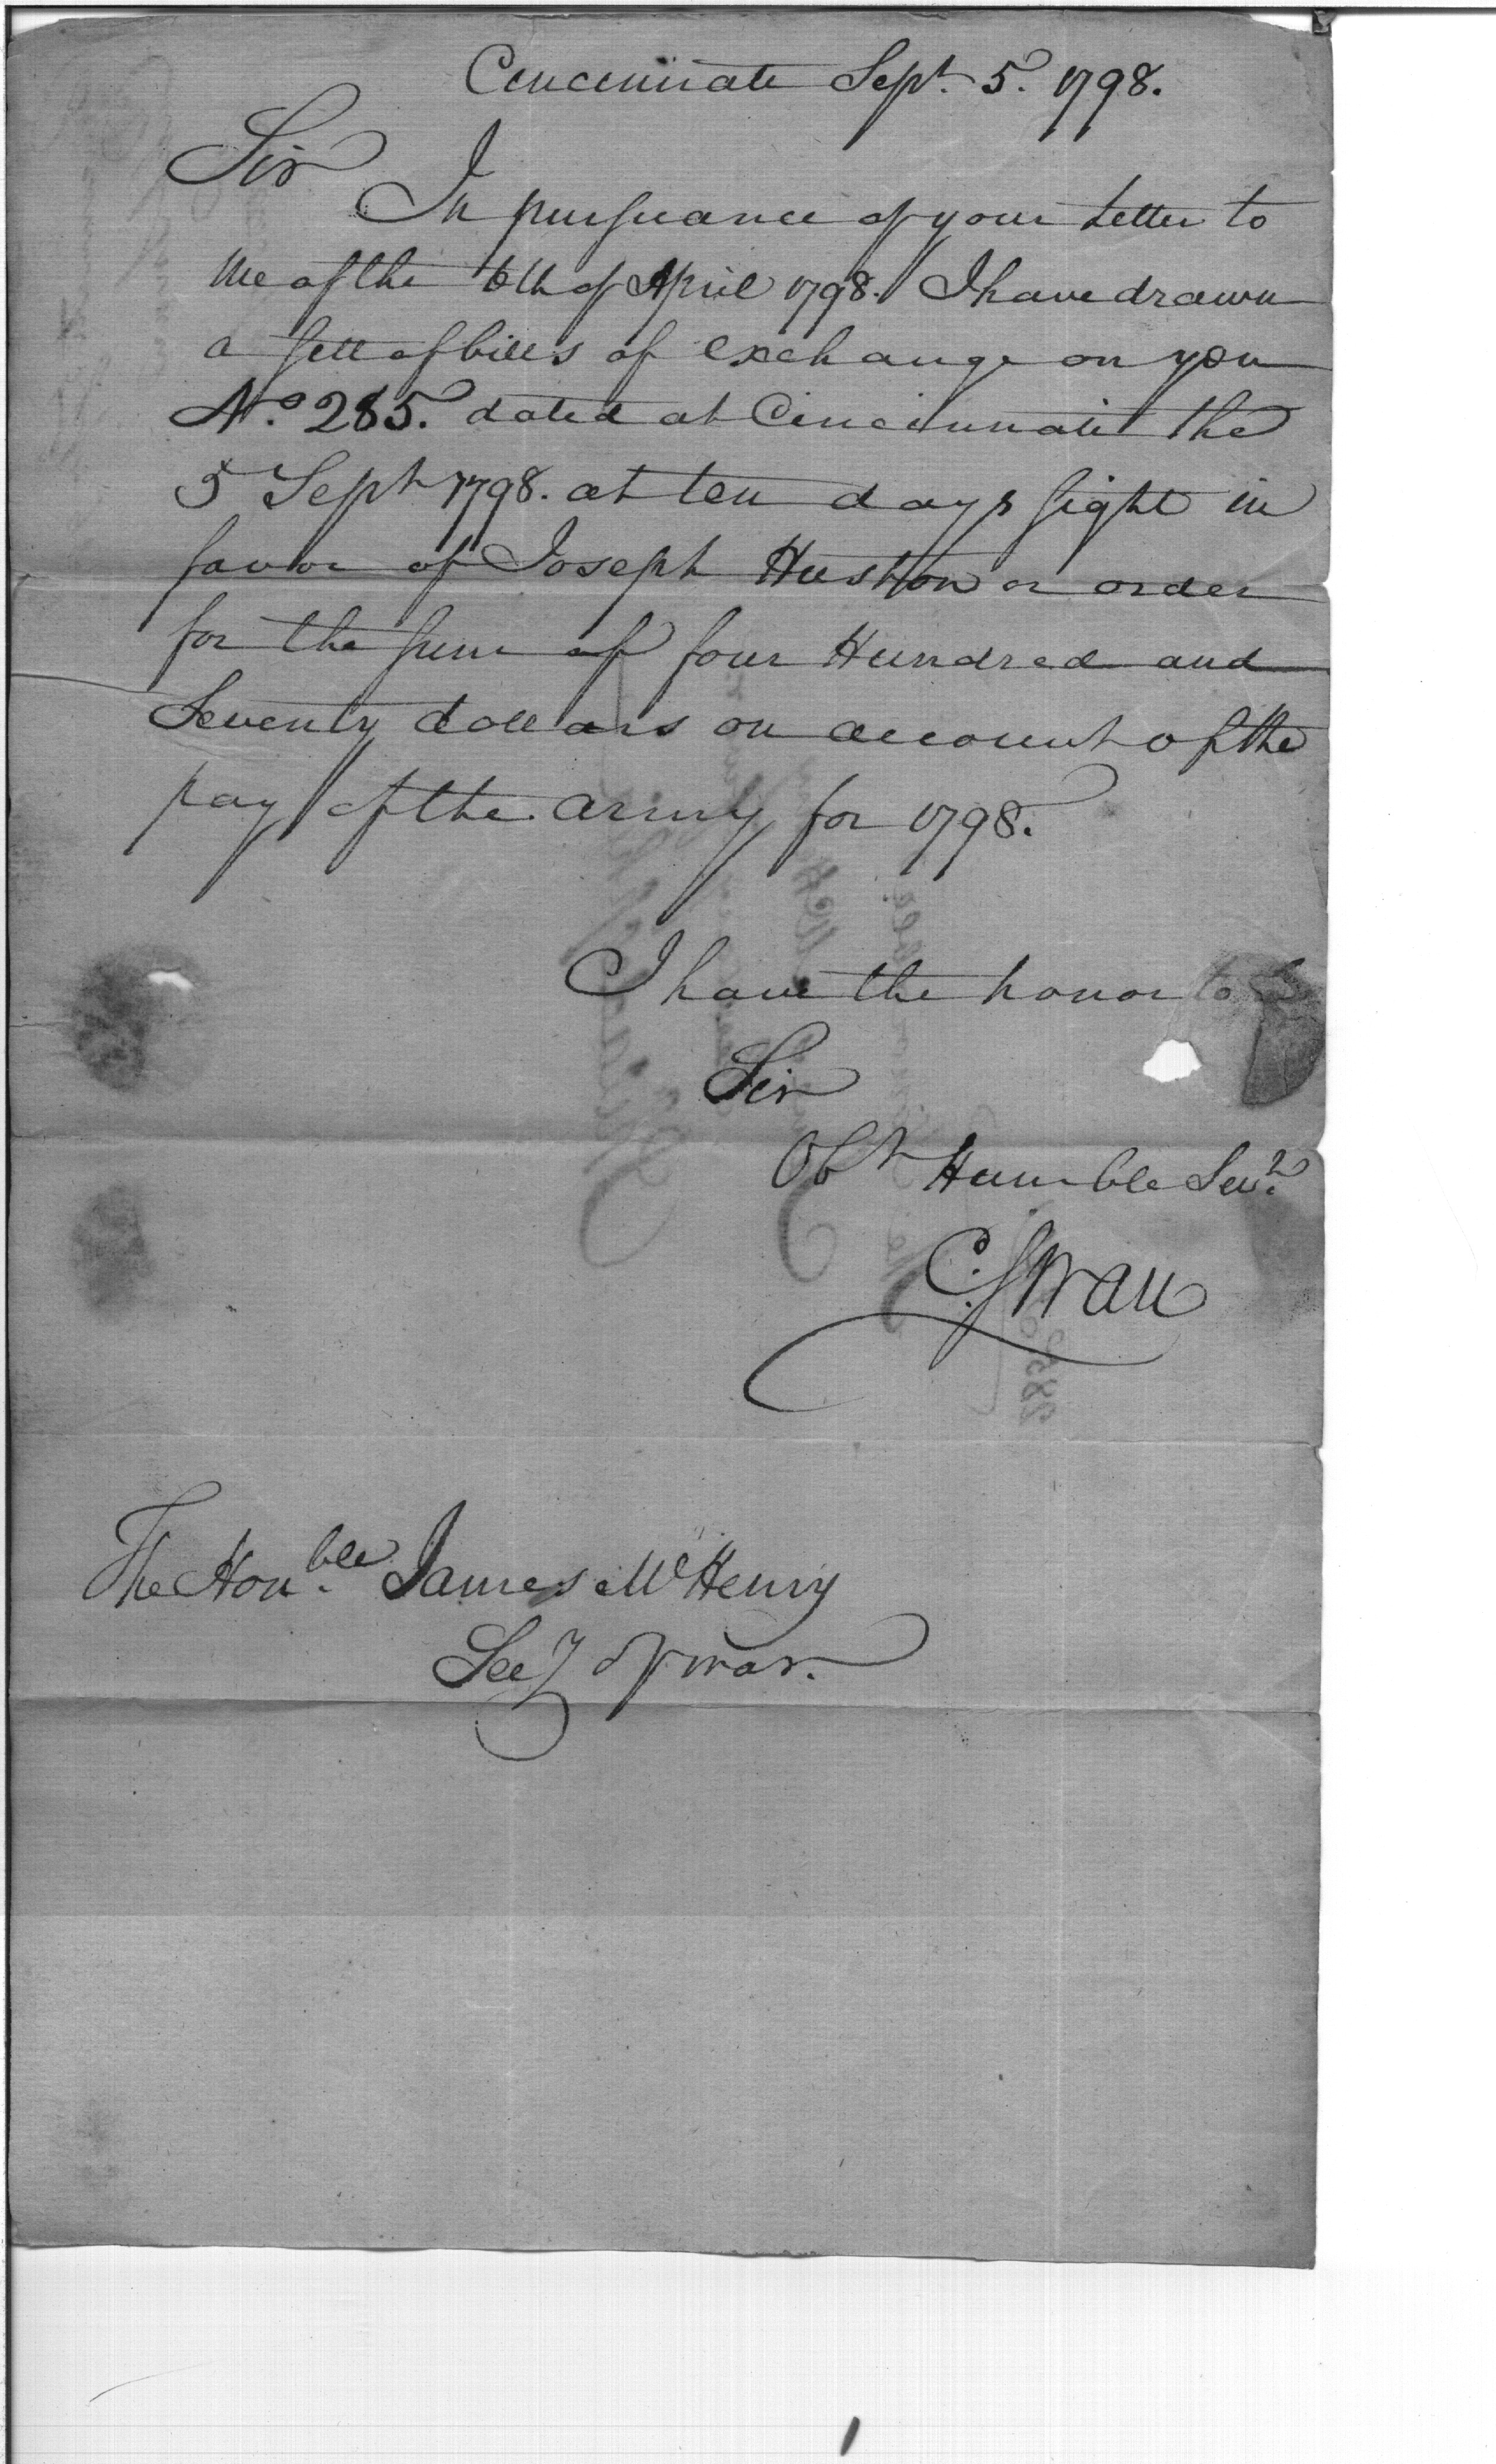 Cincinnate Sept. 5. 1798.
Sir
In pursuance of your Letter to
me of the 6th of April 1798. I have drawn
a sett of bills of exchange on you
No. 285. dated at Cincinnati the
5 Sept 1798. at ten days sight in
favor of Joseph Huston or order
for the sum of four Hundred and
Seventy dollars on account of the
pay of the army for 1798.
I have the honor to
Sir
Obt Humble Sevt.
C. Swan
The Honble. James McHenry
Secy of war.